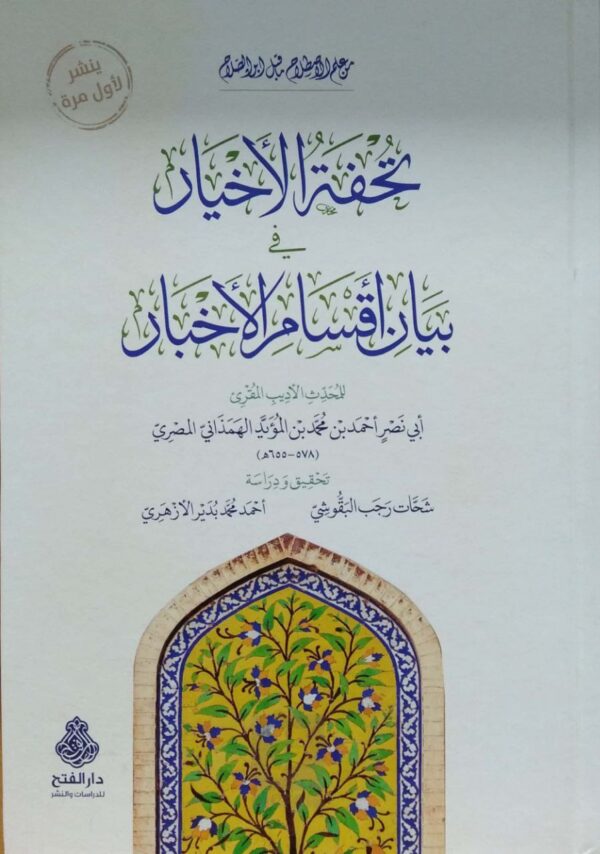 من علم الاصطلاح ما قبل ابن الصلاح
ينشر
لأول مرة
تُحْفَةُ الأَخْيَار
في
بَيَانِ أَقْسَامِ الأَخْبَار
للمُحَدِّثِ الأديبِ المُقْرِئِ
أبي نَصْرٍ أحمَد بن محُمَّد بن المُؤَيَّد الهمَذَانيّ المصْريّ
(٥٧٨-٦٥٥هـ)
تحَقِيق وَدِرَاسَة
شَحَّات رَجَب البَقُّوشِيّ أحمَد محُمَّد بُدَيْر الأزهَرِيّ
دار الفتح
للدراسات والنشر